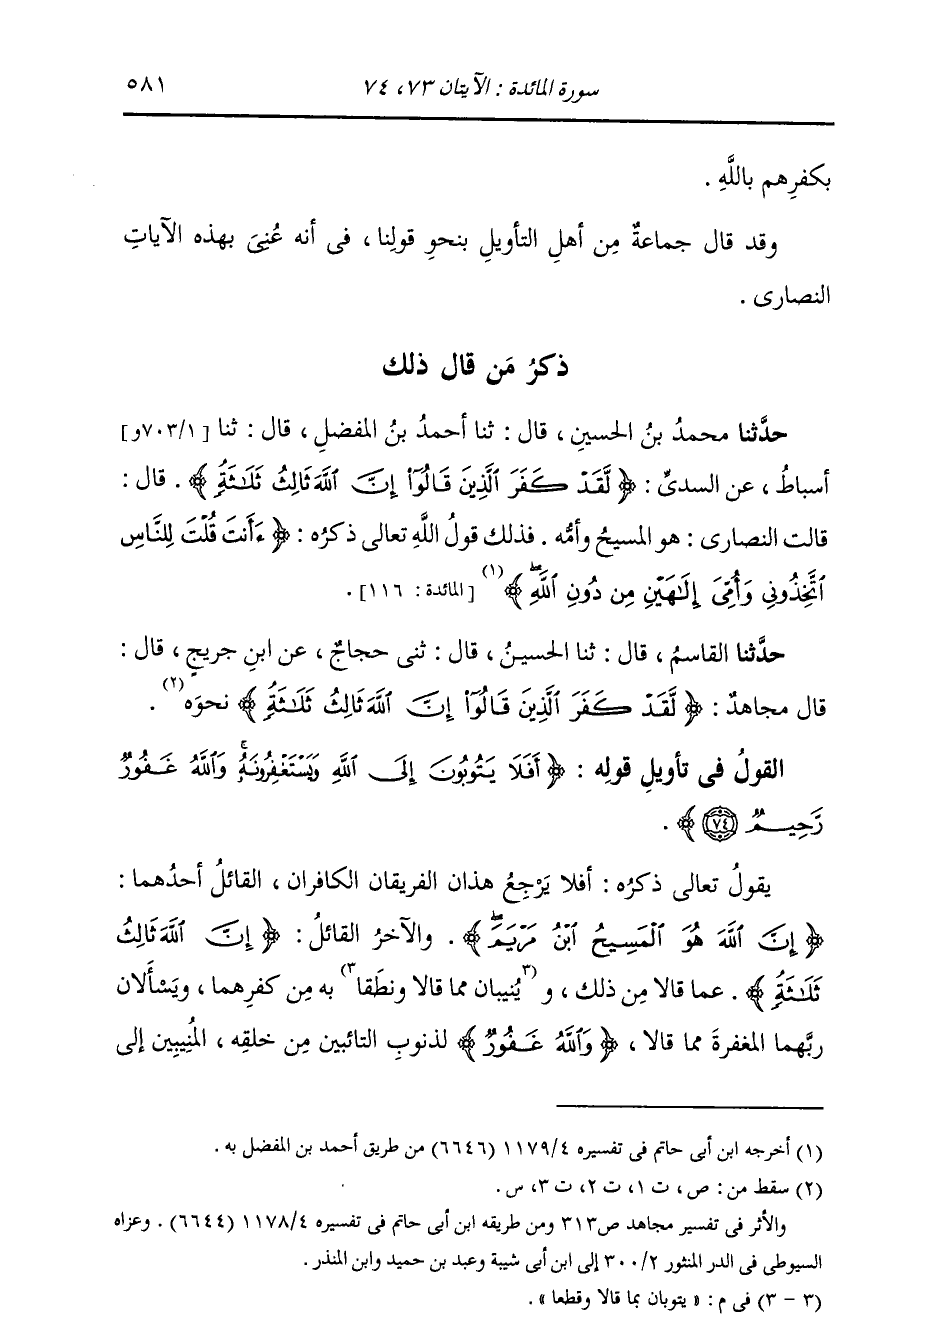 سورة المائدة : الآيتان ٧٣، ٧٤ ٥٨١
بكفرِهم باللَّهِ .
وقد قال جماعةٌ مِن أهلِ التأويلِ بنحوِ قولِنا ، فى أنه عُنِىَ بهذه الآياتِ
النصارى .
ذكرُ مَن قال ذلك
حدَّثنا محمدُ بنُ الحسينِ ، قال : ثنا أحمدُ بنُ المفضلِ ، قال : ثنا [٧٠٣/١و]
أسباطُ ، عن السدىِّ : ﴿ لَّقَدْ كَفَرَ الَّذِينَ قَالُوٓا إِنَّ اللَّهَ ثَالِثُ ثَلَـٰثَةٍ ﴾ . قال :
قالت النصارى : هو المسيحُ وأمُّه . فذلك قولُ اللَّهِ تعالى ذكرُه : ﴿ ءَأَنتَ قُلْتَ لِلنَّاسِ
ٱتَّخِذُونِى وَأُمِّىَ إِلَـٰهَيْنِ مِن دُونِ ٱللَّهِۖ ﴾(١) [المائدة : ١١٦] .
حدَّثنا القاسمُ ، قال : ثنا الحسينُ ، قال : ثنى حجاجٌ ، عن ابنِ جريجٍ ، قال :
قال مجاهدٌ : ﴿ لَّقَدْ كَفَرَ الَّذِينَ قَالُوٓا إِنَّ اللَّهَ ثَالِثُ ثَلَـٰثَةٍ ﴾ نحوَه(٢) .
القولُ فى تأويلِ قولِه : ﴿ أَفَلَا يَتُوبُونَ إِلَى ٱللَّهِ وَيَسْتَغْفِرُونَهُۥۚ وَٱللَّهُ غَفُورٌ
رَّحِيمٌ ٧٤ ﴾ .
يقولُ تعالى ذكرُه : أفلا يَرْجِعُ هذان الفريقان الكافران ، القائلُ أحدُهما :
﴿ إِنَّ ٱللَّهَ هُوَ ٱلْمَسِيحُ ٱبْنُ مَرْيَمَۖ ﴾ . والآخرُ القائلُ : ﴿ إِنَّ ٱللَّهَ ثَالِثُ
ثَلَـٰثَةٍ ﴾ . عما قالا مِن ذلك ، و (٣يُنيبان مما قالا ونطَقا٣) به مِن كفرِهما ، ويَسْألان
ربَّهما المغفرةَ مما قالا ، ﴿ وَٱللَّهُ غَفُورٌ ﴾ لذنوبِ التائبين مِن خلقِه ، المُنِيبِين إلى
(١) أخرجه ابن أبى حاتم فى تفسيره ١١٧٩/٤ (٦٦٤٦) من طريق أحمد بن المفضل به .
(٢) سقط من : ص ، ت ١ ، ت ٢ ، ت ٣ ، س .
والأثر فى تفسير مجاهد ص ٣١٣ ومن طريقه ابن أبى حاتم فى تفسيره ١١٧٨/٤ (٦٦٤٤) . وعزاه
السيوطى فى الدر المنثور ٣٠٠/٢ إلى ابن أبى شيبة وعبد بن حميد وابن المنذر .
(٣ - ٣) فى م : « يتوبان بما قالا وقطعا » .